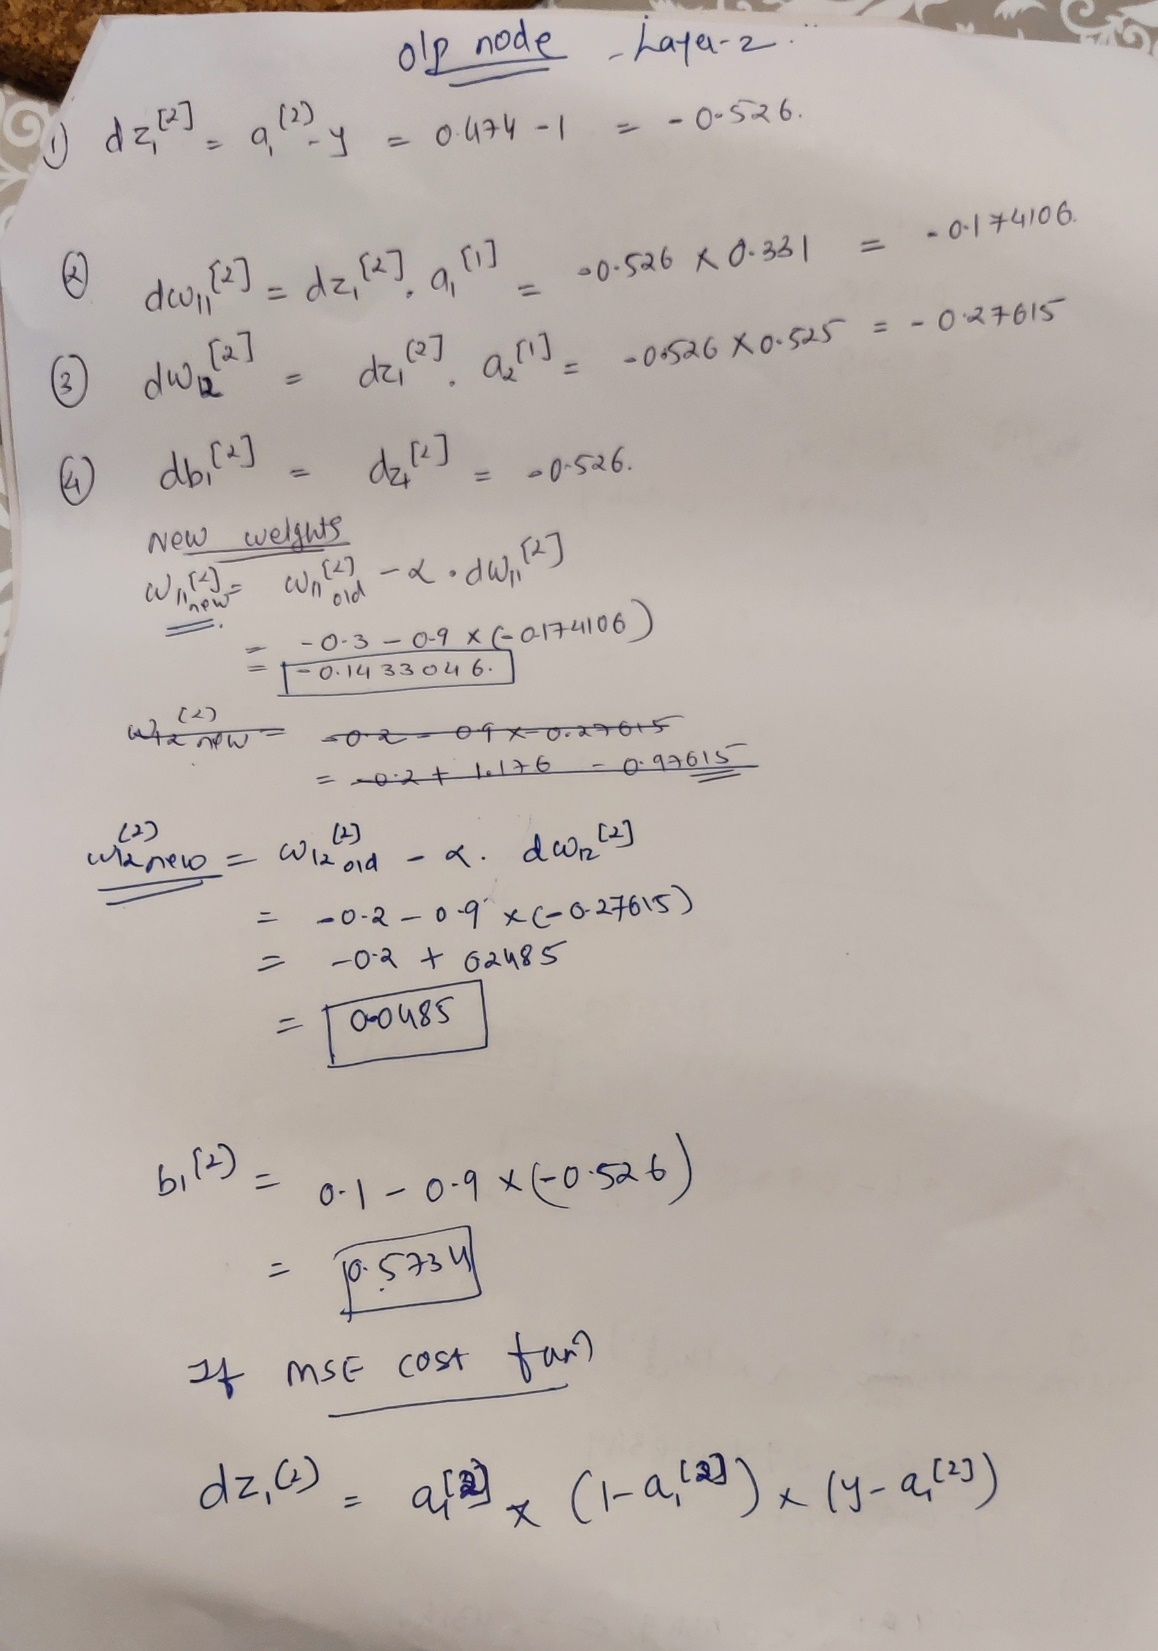 o/p node - Layer-2.
1) dz₁^[2] = a₁^(2) - y = 0.474 - 1 = -0.526.
(2) dw₁₁^[2] = dz₁^[2] . a₁^[1] = -0.526 x 0.331 = -0.174106.
(3) dw₁₂^[2] = dz₁^[2] . a₂^[1] = -0.526 x 0.525 = -0.27615
(4) db₁^[2] = dz₁^[2] = -0.526.
New weights
w₁₁^[2] new = w₁₁^[2] old - α . dw₁₁^[2]
= -0.3 - 0.9 x (-0.174106)
= -0.1433046.
w₁₂^(2) new = -0.2 - 0.9 x -0.27615
= -0.2 + 1.176 - 0.97615
w₁₂^(2) new = w₁₂^[2] old - α . dw₁₂^[2]
= -0.2 - 0.9 x (-0.27615)
= -0.2 + 0.2485
= 0.0485
b₁^(2) = 0.1 - 0.9 x (-0.526)
= 0.5734
If MSE cost funⁿ
dz₁^(2) = a₁^[2] x (1 - a₁^[2]) x (y - a₁^[2])